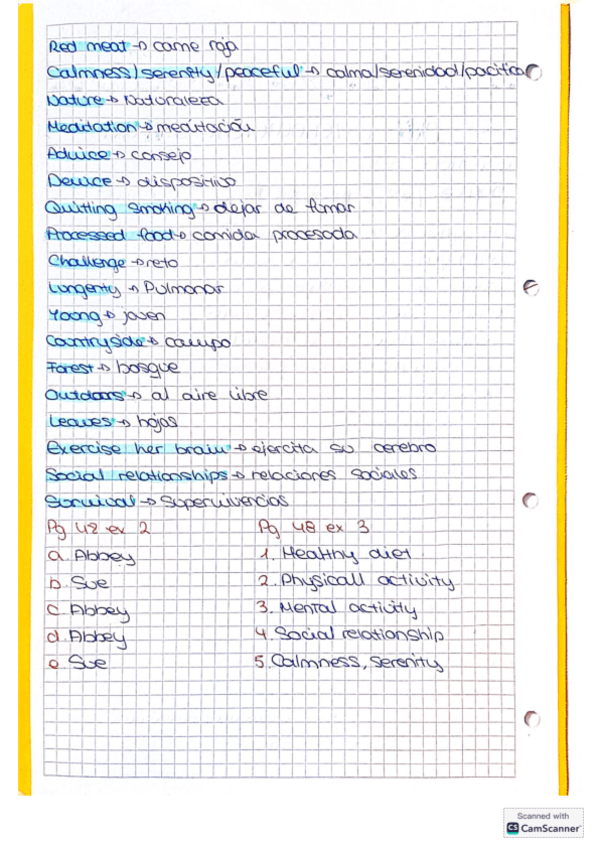 Red meat → carne roja
Calmness/serenity/peaceful → calma/serenidad/pacífica
Nature → Naturaleza
Meditation → meditación
Advice → consejo
Device → dispositivo
Quitting smoking → dejar de fumar
Processed food → comida procesada
Challenge → reto
Lungenty → Pulmonar
Young → joven
Countryside → campo
Forest → bosque
Outdoors → al aire libre
Leaves → hojas
Exercise her brain → ejercita su cerebro
Social relationships → relaciones sociales
Survival → supervivencias
Pg 48 ex 2
a. Abbey
b. Sue
c. Abbey
d. Abbey
e. Sue
Pg 48 ex 3
1. Healthy diet
2. Physicall activity
3. Mental activity
4. Social relationship
5. Calmness, serenity
Scanned with
CS CamScanner